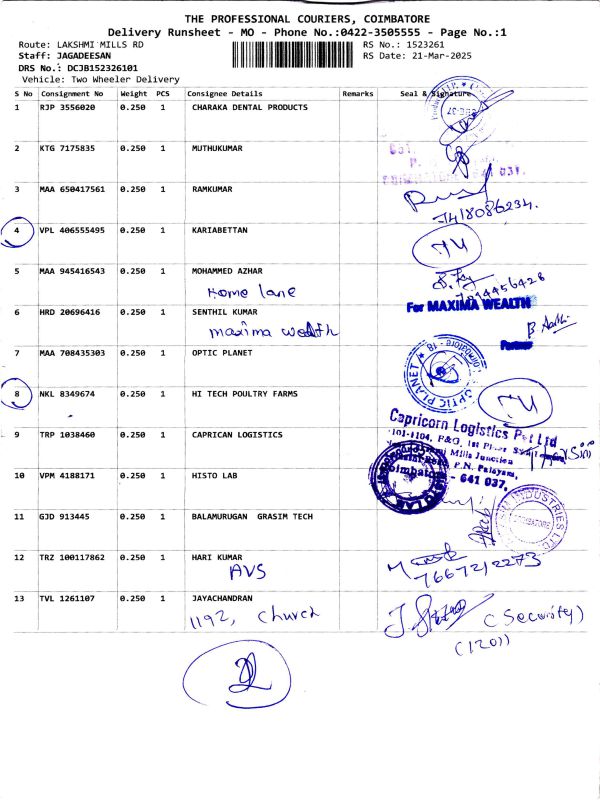 THE PROFESSIONAL COURIERS, COIMBATORE
Delivery Runsheet - MO - Phone No.:0422-3505555 - Page No.:1
Route: LAKSHMI MILLS RD
RS No.: 1523261
Staff: JAGADEESAN
RS Date: 21-Mar-2025
DRS No.: DCJB152326101
Vehicle: Two Wheeler Delivery
S No Consignment No Weight PCS Consignee Details Remarks Seal & Signature
1 RJP 3556020 0.250 1 CHARAKA DENTAL PRODUCTS
2 KTG 7175835 0.250 1 MUTHUKUMAR
3 MAA 650417561 0.250 1 RAMKUMAR
7418086234.
4 VPL 406555495 0.250 1 KARIABETTAN
5 MAA 945416543 0.250 1 MOHAMMED AZHAR
Home lane
6 HRD 20696416 0.250 1 SENTHIL KUMAR
For MAXIMA WEALTH
maxima wealth
Partner
7 MAA 708435303 0.250 1 OPTIC PLANET
OPTIC PLANET
8 NKL 8349674 0.250 1 HI TECH POULTRY FARMS
Capricorn Logistics Pvt Ltd
9 TRP 1038460 0.250 1 CAPRICAN LOGISTICS
Mills Junction
P.N. Palayam,
Coimbatore - 641 037.
10 VPM 4188171 0.250 1 HISTO LAB
11 GJD 913445 0.250 1 BALAMURUGAN GRASIM TECH
INDUSTRIES LTD
12 TRZ 100117862 0.250 1 HARI KUMAR
AVS
7667212273
13 TVL 1261107 0.250 1 JAYACHANDRAN
1192, church
(Security)
(1201)
2